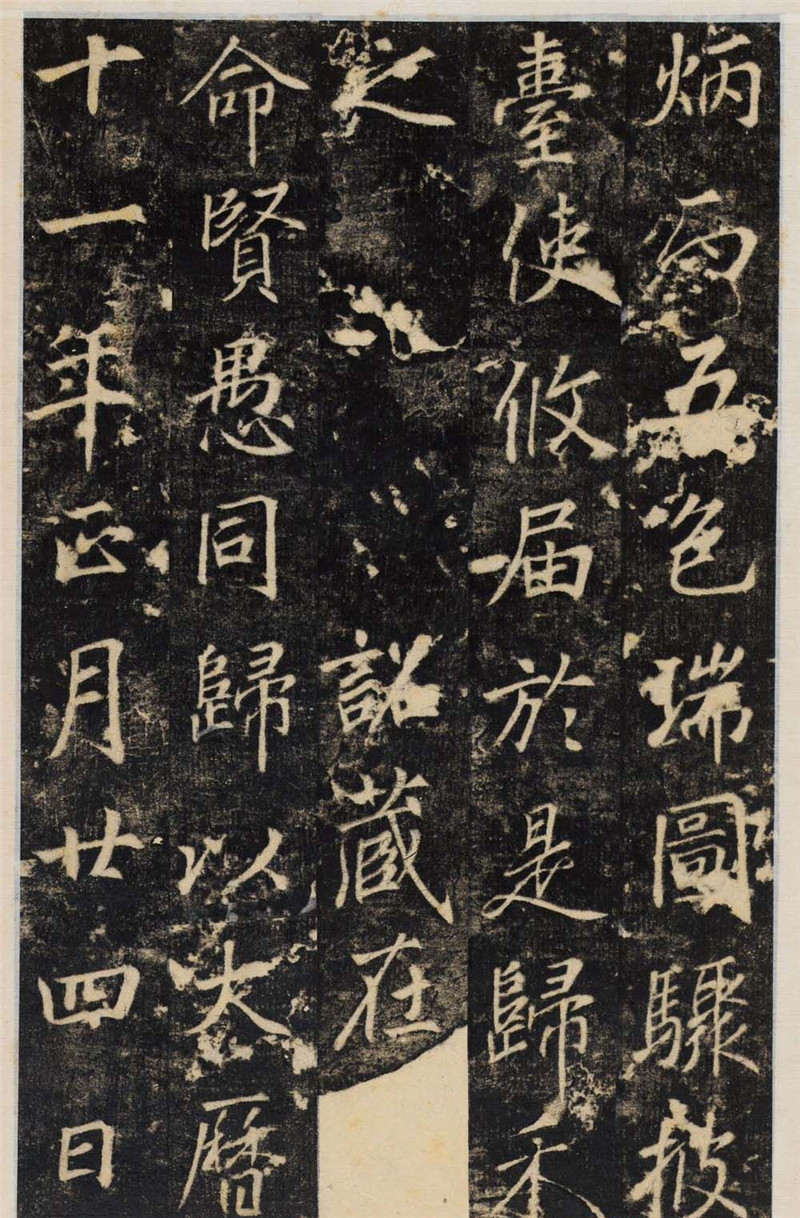 炳而五色瑞圖驟披
臺使攸届於是歸
之詔藏在
命賢愚同歸以大曆
十一年正月廿四日